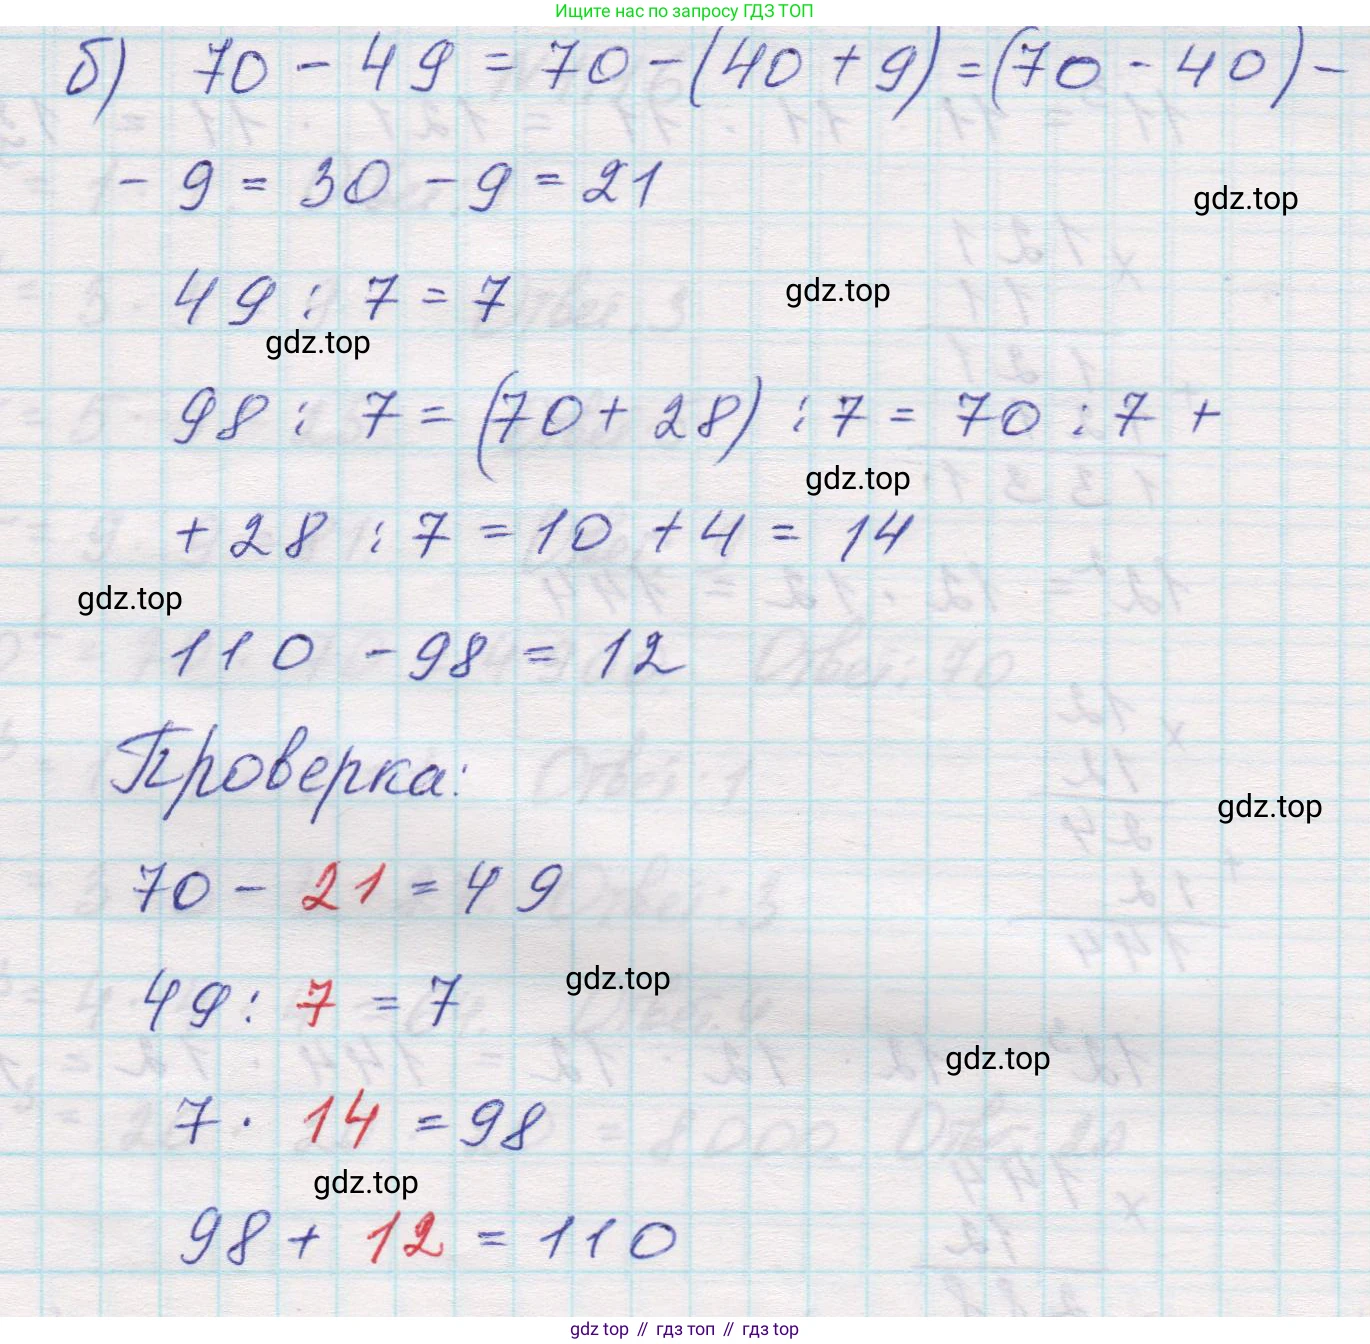 Ищите нас по запросу ГДЗ ТОП
б) 70 - 49 = 70 - (40 + 9) = (70 - 40) -
- 9 = 30 - 9 = 21
gdz.top
49 : 7 = 7
gdz.top
gdz.top
98 : 7 = (70 + 28) : 7 = 70 : 7 +
gdz.top
+ 28 : 7 = 10 + 4 = 14
gdz.top
110 - 98 = 12
Проверка:
gdz.top
70 - 21 = 49
gdz.top
49 : 7 = 7
gdz.top
7 · 14 = 98
gdz.top
98 + 12 = 110
gdz top // гдз топ // gdz top